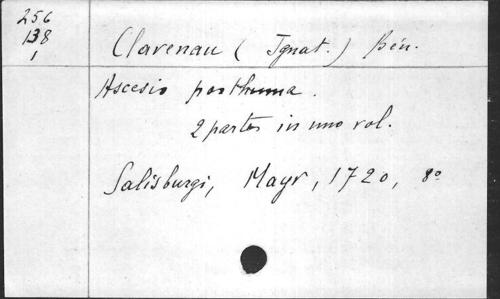 256
138
1
Clavenau ( Ignat. ) Bén.
Ascesis posthuma.
2 partes in uno vol.
Salisburgi, Mayr, 1720, 8º